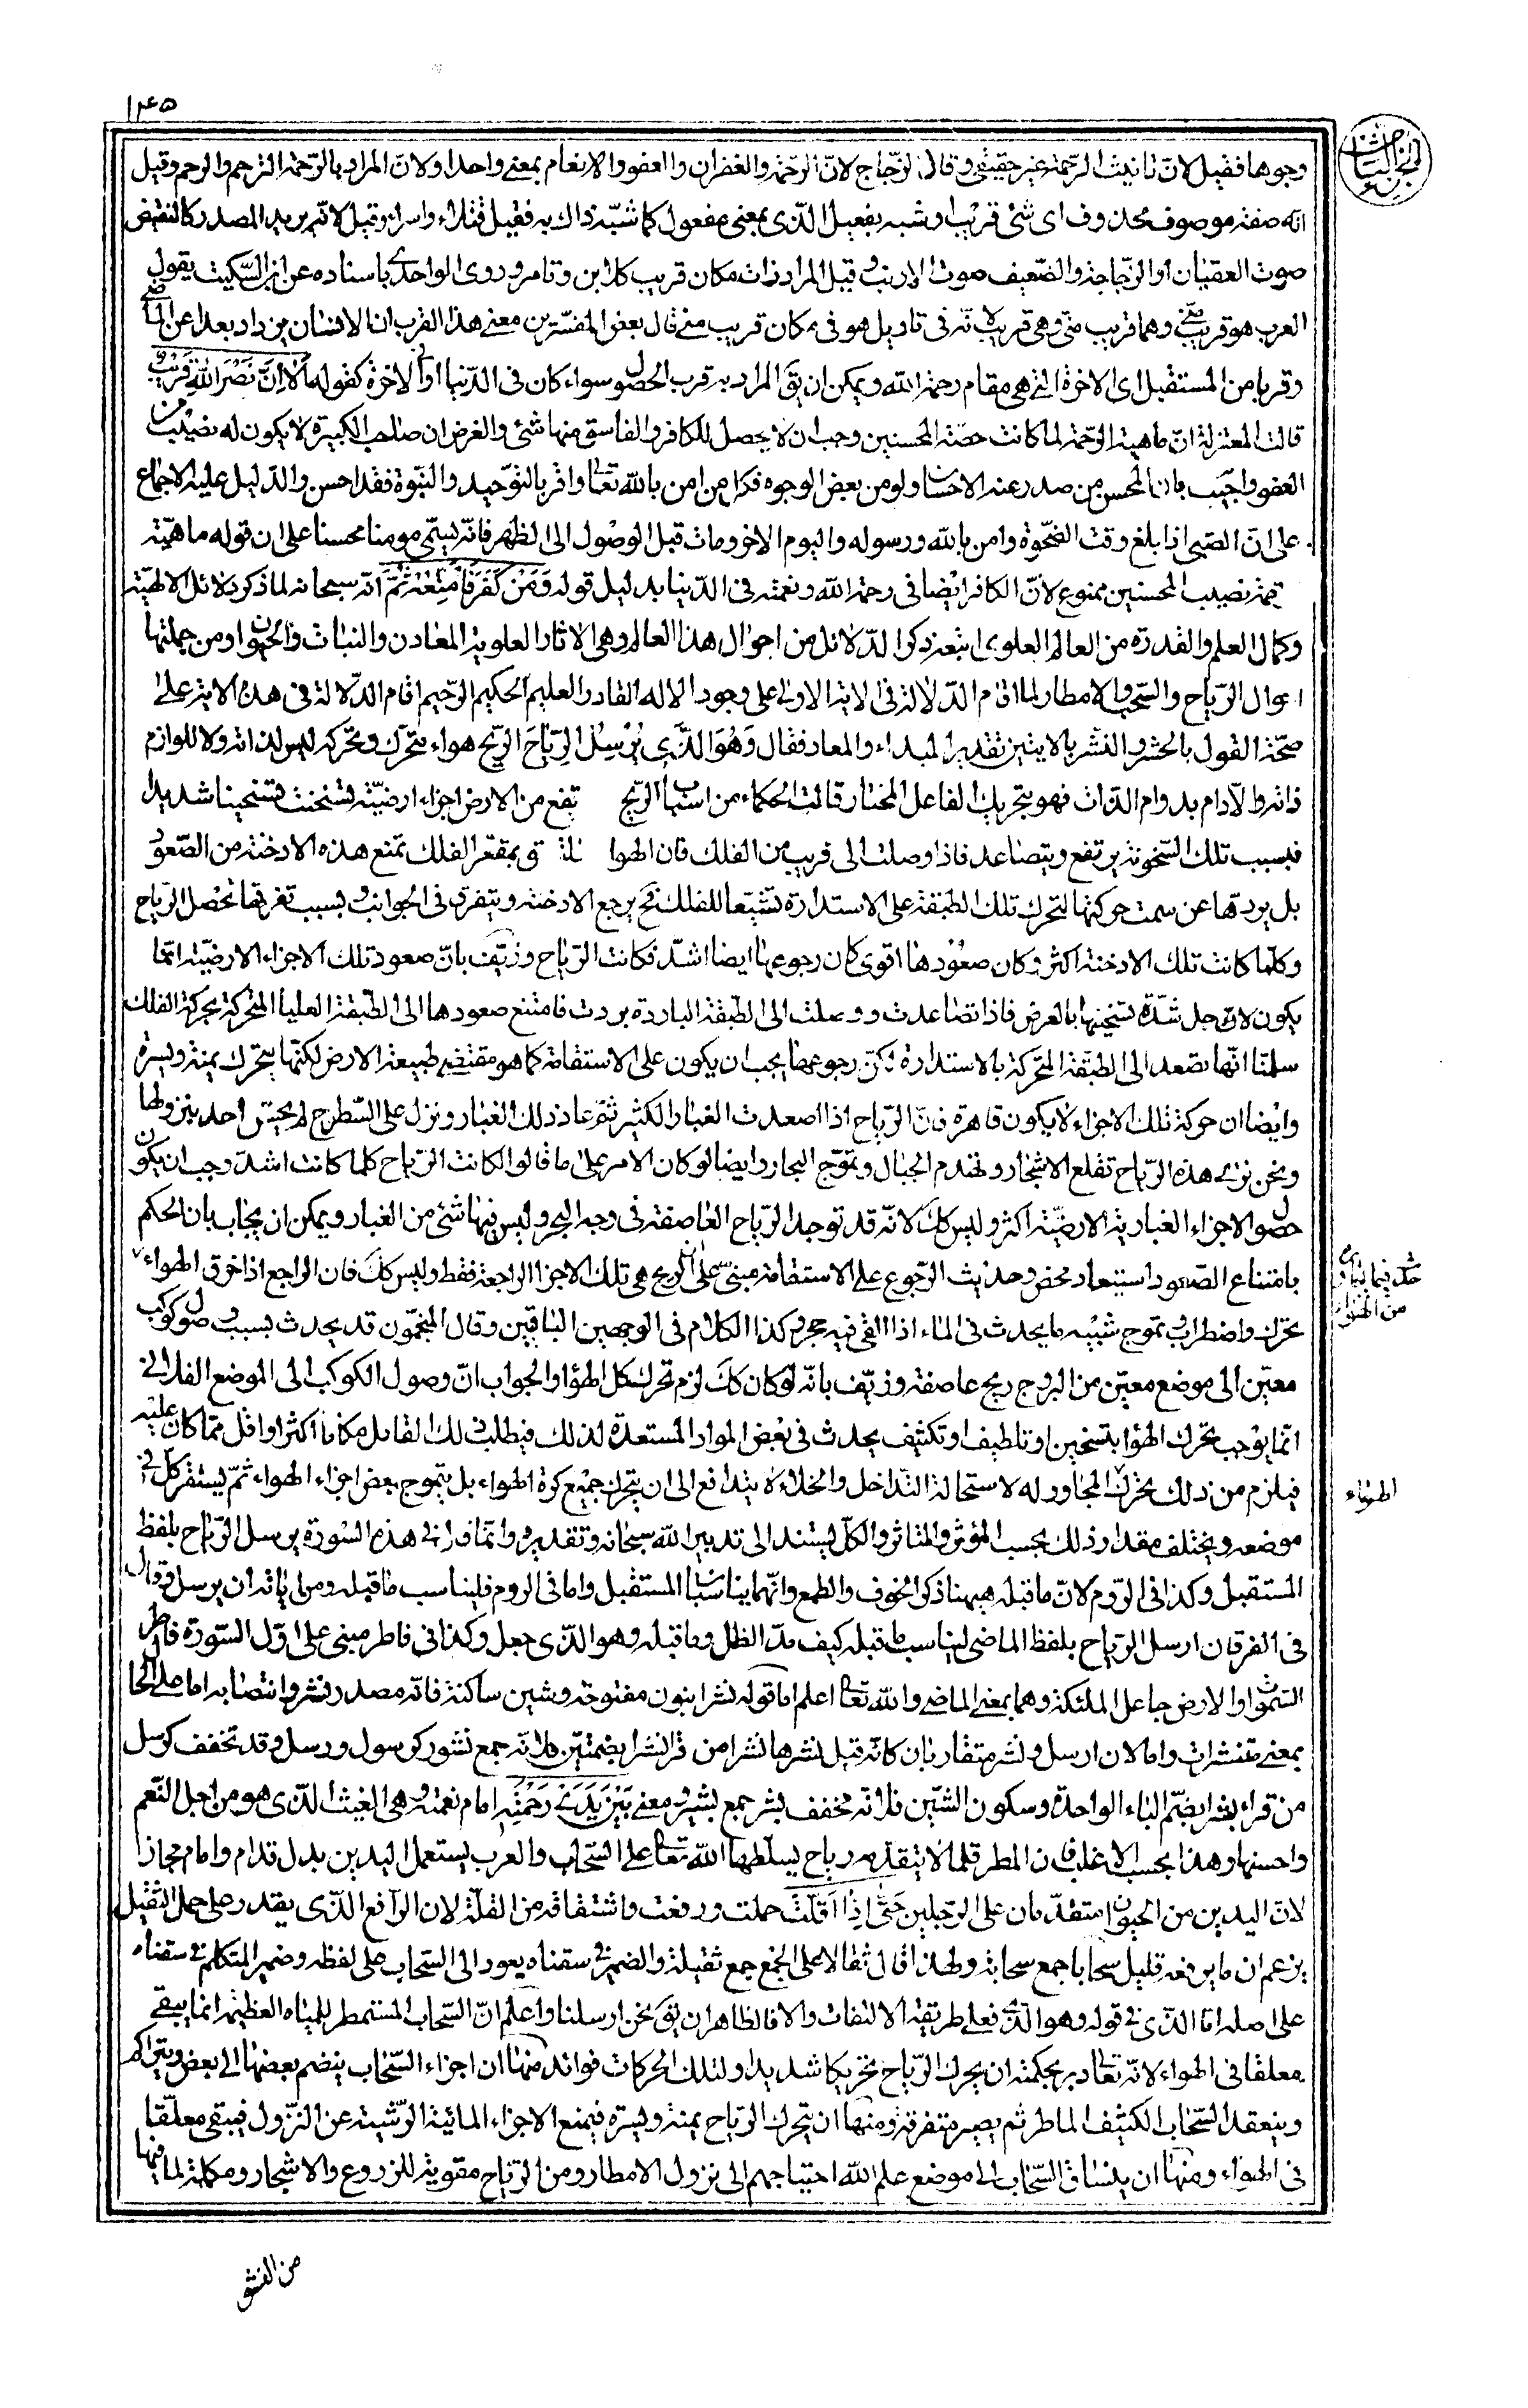 ١٤٥
الجزء الثامن
وجوها فقيل لان تانيث الرحمة غير حقيقي وقال الزجاج لان الرحمة والغفران والعفو والانعام بمعنى واحد اولان المراد بالرحمة الترحم والرحم وقيل
انه صفة موصوف محذوف اى شئ قريب او شبه بفعيل الذى بمعنى مفعول كما شبه ذاك به فقيل قتلاء واسراء وقيل لانه بريد المصدر كالنقيض
صوت العقبان او الزجاجة والضغيب صوت الارنب وقيل المراد ذات مكان قريب كلابن وتامر وروى الواحدى باسناده عن ابن السكيت يقول
العرب هو قريب منى وهما قريب منى وهى قريب لانه فى تاويل هو فى مكان قريب منى قال بعض المفسرين معنى هذا القرب ان الانسان يزداد بعدا عن الماضى
وقربا من المستقبل اى الاخرة التى هى مقام رحمة الله ويمكن ان يق المراد به قرب الحصول سواء كان فى الدنيا او فى الاخرة كقوله الا ان نصر الله قريب
قالت المعتزلة ان ماهية الرحمة لما كانت حصة المحسنين وجب ان لا يحصل للكافر والفاسق منها شئ والغرض ان صاحب الكبيرة لا يكون له نصيب من
العفو واجيب بان المحسن من صدر عنه الاحسان ولو من بعض الوجوه فكل من امن بالله تعالى واقر بالتوحيد والنبوة فقد احسن والدليل عليه الاجماع
على ان الصبى اذا بلغ وقت الضحوة وامن بالله ورسوله واليوم الاخر ومات قبل الوصول الى الظهر فانه يسمى مومنا محسنا على ان قوله ماهية
رحمة نصيب المحسنين ممنوع لان الكافر ايضا فى رحمة الله ونعمته فى الدنيا بدليل قوله ومن كفر فامتعه ثم انه سبحانه لما ذكر دلائل الالهية
وكمال العلم والقدرة من العالم العلوى اتبعه ذكر الدلائل من احوال هذا العالم وهى الاثار العلوية المعادن والنبات والحيوان ومن جملتها
احوال الرياح والسحب والامطار لما اقام الدلالة فى الاية الاولى على وجود الاله القادر العليم الحكيم الرحيم اقام الدلالة فى هذه الاية على
صحة القول بالحشر والنشر بالايتين تقدير المبداء والمعاد فقال وهو الذى يرسل الرياح الريح هواء يتحرك وتحركه ليس لذاته ولا للوازم
ذاته والا دام بدوام الذات فهو بتحريك الفاعل المختار قالت الحكماء من اسباب الريح تفع من الارض اجزاء ارضية تسخنت تسخينا شديدا
فبسبب تلك السخونة يرتفع ويتصاعد فاذا وصلت الى قريب من الفلك فان الهوا ق بمقعر الفلك تمنع هذه الادخنة من الصعود
بل يردها عن سمت حركتها لتحرك تلك الطبقة على الاستدارة تشبعا للفلك فح يرجع الادخنة ويتفرق فى الجوانب وبسبب تفرقها تحصل الرياح
وكلما كانت تلك الادخنة اكثر وكان صعودها اقوى كان رجوعها ايضا اشد فكانت الرياح وزيف بان صعود تلك الاجزاء الارضية انما
يكون لاجل شدة تسخينها بالعرض فاذا تصاعدت ووصلت الى الطبقة الباردة بردت فامتنع صعودها الى الطبقة العليا المتحركة بحركة الفلك
سلمنا انها تصعد الى الطبقة المتحركة بالاستدارة لكن رجوعها يجب ان يكون على الاستقامة كما هو مقتضى طبيعة الارض لكنها يتحرك يمنة ويسرة
وايضا ان حركة تلك الاجزاء لا يكون قاهرة فان الرياح اذا اصعدت الغبار الكثير ثم عاد ذلك الغبار ونزل على السطوح لم يحس احد بنزولها
ونحن نرى هذه الرياح تقلع الاشجار وتهدم الجبال وتموج البحار وايضا لو كان الامر على ما قالوا لكانت الرياح كلما كانت اشد وجب ان يكون
حصول الاجزاء الغبارية الارضية اكثر وليس كك لانه قد توجد الرياح العاصفة فى وجه البحر وليس فيها شئ من الغبار ويمكن ان يجاب بان الحكم
بامتناع الصعود استبعاد محض وحديث الرجوع على الاستقامة مبنى على ان الريح هى تلك الاجزا الراجعة فقط وليس كك فان الراجع اذا خرق الهواء
تحرك واضطراب وتموج شبيه ما يحدث فى الماء اذا القى فيه حجر وكذا الكلام فى الوجهين الباقيين وقال المنجمون قد يحدث بسبب وصول كوكب
معين الى موضع معين من البروج ريح عاصفة وزيف بانه لو كان كك لزم تحرك كل الهواء والجواب ان وصول الكوكب الى الموضع الفلانى
انما يوجب تحرك الهوا بتسخين او تلطيف او تكثيف يحدث فى بعض المواد المستعدة لذلك فيطلب ذلك القابل مكانا اكثر او اقل مما كان عليه
فيلزم من ذلك تحرك المجاور له لاستحالة التداخل والخلاء لا يتدافع الى ان يتحرك جميع كرة الهواء بل يتموج بعض اجزاء الهواء ثم يستقر كل فى
موضعه ويختلف مقدار ذلك بحسب المؤثر والمتاثر والكل يستند الى تدبير الله سبحانه وتقديره وانما قرا فى هذه السورة يرسل الرياح بلفظ
المستقبل وكذا فى الروم لان ما قبله ههنا ذكر الخوف والطمع وانهما يناسبان المستقبل واما فى الروم فليناسب ما قبله ومن اياته ان يرسل وقال
فى الفرقان ارسل الرياح بلفظ الماضى ليناسب ما قبله كيف مد الظل وما قبله وهو الذى جعل وكذا فى فاطر مبنى على اول السورة فاطر
السموات والارض جاعل الملئكة وهما بمعنى الماضى والله تعالى اعلم اما قوله نشرا بنون مفتوحة وشين ساكنة فانه مصدر نشر وانتصابه اما على الحال
بمعنى منتشرات واما لان ارسل ونشر متقاربان كانه قيل نشرها نشرا من قرا نشرا بضمتين فلانه جمع نشور كرسول ورسل وقد تخفف كرسل
من قراء بشرا بضم الباء الواحدة وسكون الشين فلانه مخفف بشر جمع بشير ومعنى بين يدى رحمته امام نعمته وهى الغيث الذى هو من اجل النعم
واحسنها وهذا بحسب الاغلب فان المطر قلما لا يتقدمه رياح يسلطها الله تعالى على السحاب والعرب يستعمل اليدين بدل قدام وامام مجازا
لان اليدين من الحيوان متقدمان على الرجلين حتى اذا اقلت حملت ورفعت واشتقاقه من القلة لان الرافع الذى يقدر على حمل الثقيل
يزعم ان ما يرفعه قليل سحابا جمع سحابة ولهذا قال ثقالا على الجمع جمع ثقيلة والضمير فى سقناه يعود الى السحاب على لفظه وضمير المتكلم فى سقناه
على اصله اما الذى فى قوله وهو الذى فعلى طريقة الالتفات والا فالظاهر ان يق نحن ارسلنا واعلم ان السحاب المستمطر للمياه العظيمة انما يبقى
معلقا فى الهواء لانه تعالى دبر بحكمته ان يحرك الرياح تحريكا شديدا ولتلك الحركات فوائد منها ان اجزاء السحاب ينضم بعضها الى بعض ويتراكم
وينعقد السحاب الكثيف الماطر ثم يصير متفرقة ومنها ان يتحرك الرياح يمنة ويسرة فيمنع الاجزاء المائية الرشية عن النزول فيبقى معلقا
فى الهواء ومنها ان ينساق السحاب الى موضع علم الله احتياجهم الى نزول الامطار ومن الرياح مقوية للزروع والاشجار ومكملة لما فيها
من الهواء
الهواء
من النشو